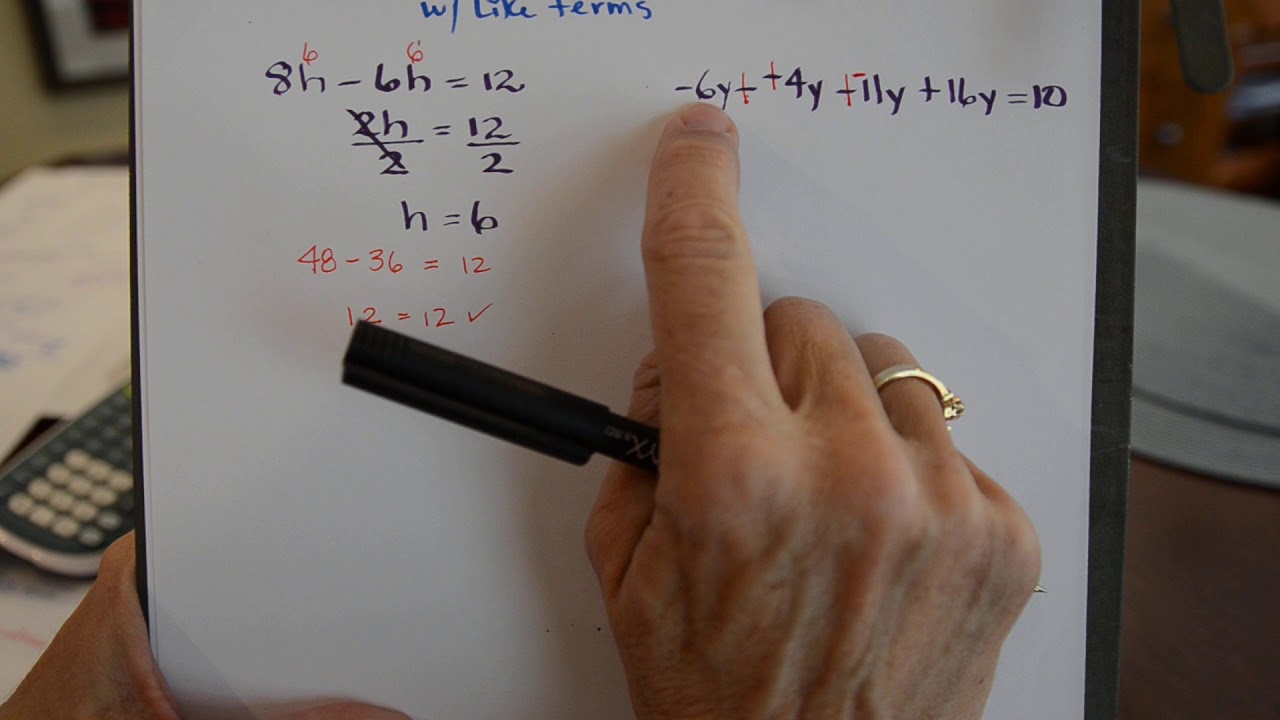 w/ Like terms
6 6
8h - 6h = 12
2h/2 = 12/2
h = 6
48 - 36 = 12
12 = 12 ✓
-6y + +4y + -11y + 16y = 10